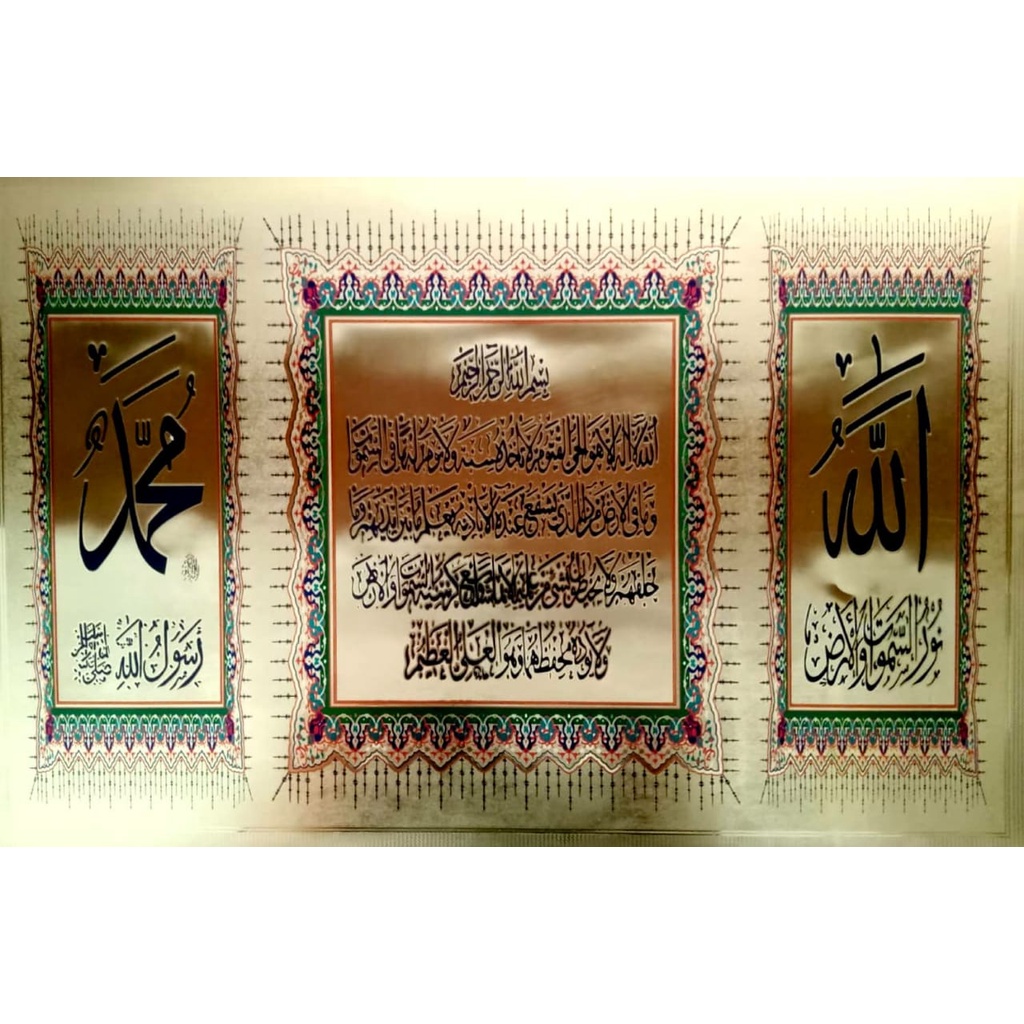 الله
نور السموات والأرض
بسم الله الرحمن الرحيم
الله لا اله الا هو الحي القيوم لا تأخذه سنة ولا نوم له ما في السموات
وما في الارض من ذا الذي يشفع عنده الا باذنه يعلم ما بين ايديهم وما
خلفهم ولا يحيطون بشئ من علمه الا بما شاء وسع كرسيه السموات والارض
ولا يؤده حفظهما وهو العلي العظيم
محمد
رسول الله
صلى الله عليه وسلم